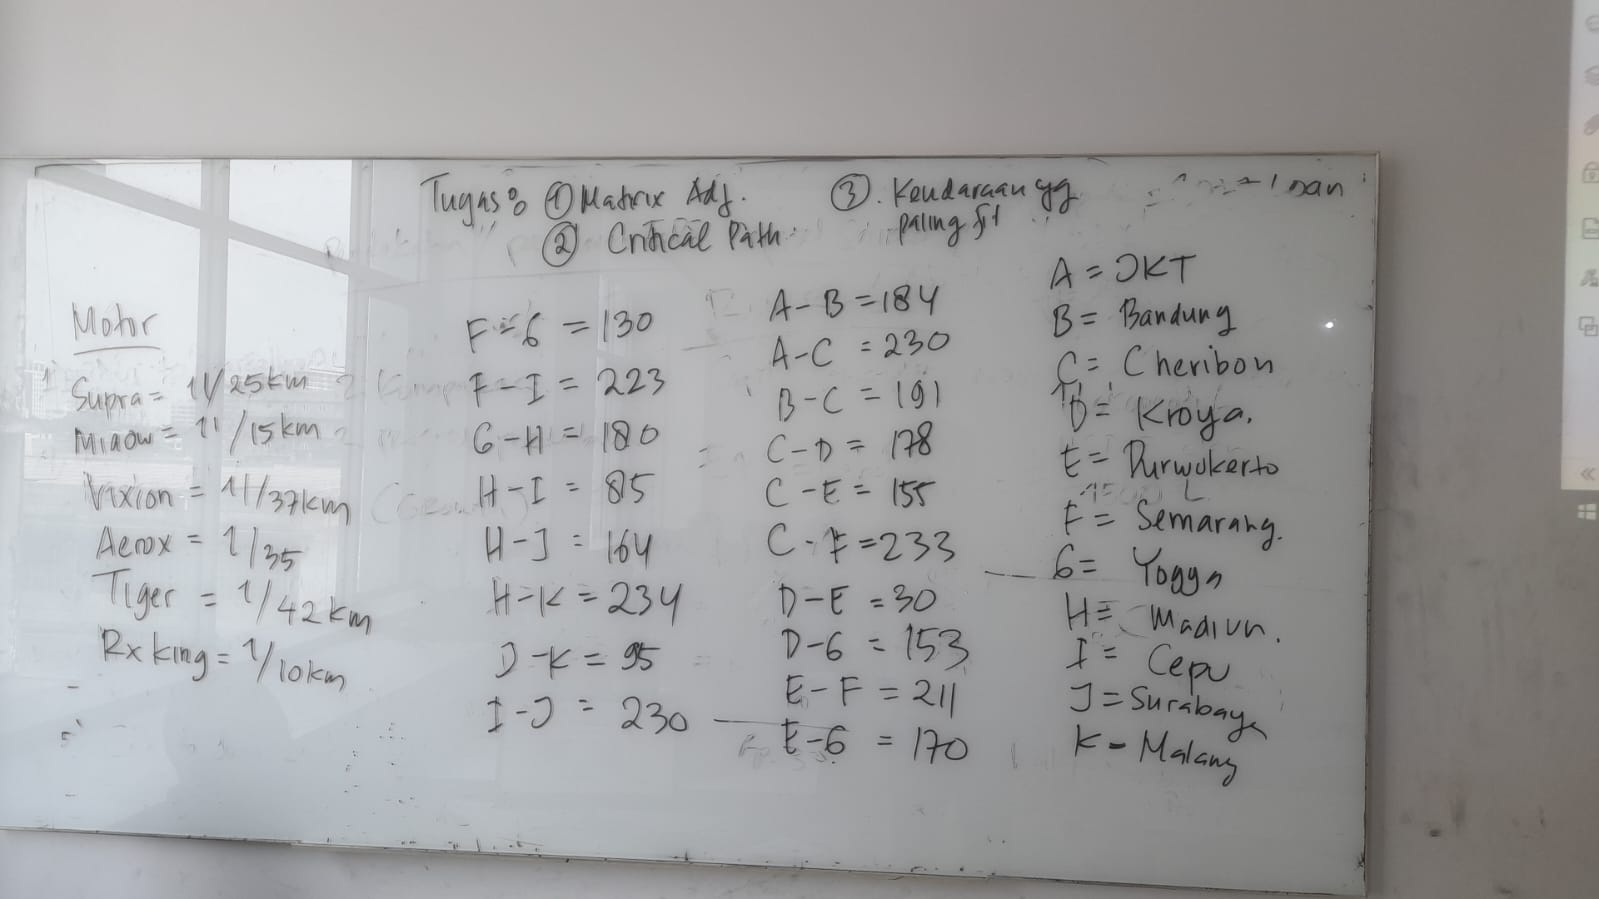 Tugas: ① Matrix Adj.
② Critical Path
③. Kendaraan yg
paling fit
Motor
Supra = 1l/25km
Miaow = 1l/15km
Vixion = 1l/37km
Aerox = 1/35
Tiger = 1/42km
Rx king = 1/10km
F-G = 130
F-I = 223
G-H = 180
H-I = 85
H-J = 164
H-K = 234
J-K = 95
I-J = 230
A-B = 184
A-C = 230
B-C = 191
C-D = 178
C-E = 155
C-F = 233
D-E = 30
D-G = 153
E-F = 211
E-G = 170
A = JKT
B = Bandung
C = Cheribon
D = Kroya.
E = Purwokerto
F = Semarang.
G = Yogya
H = Madiun.
I = Cepu
J = Surabaya
K - Malang